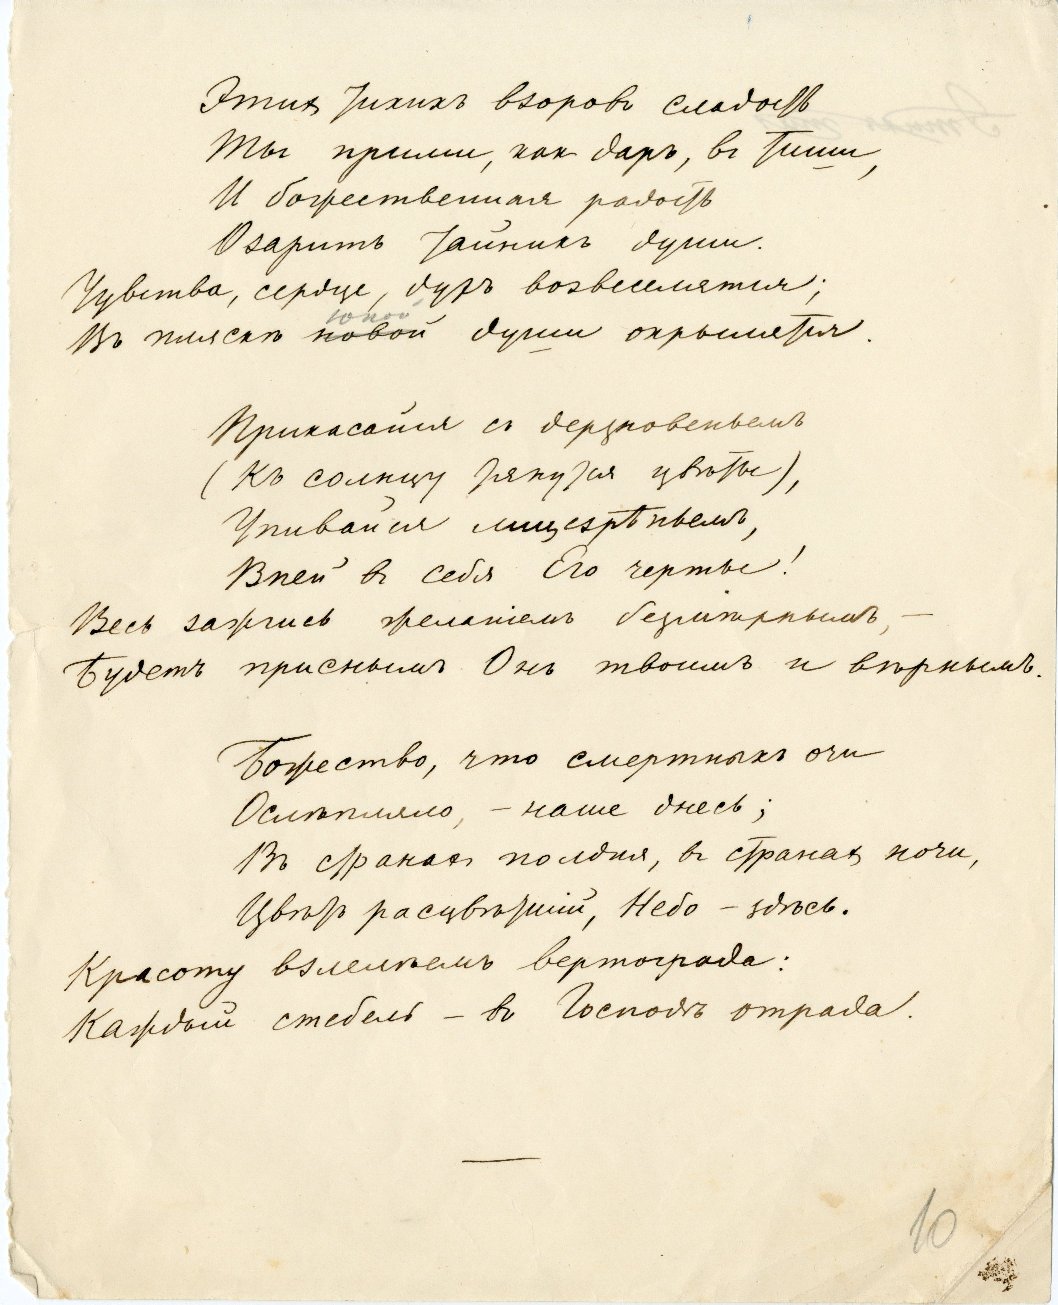 Этихъ тихихъ взоровъ сладость
Ты прими, какъ даръ, въ тиши,
И божественная радость
Озаритъ тайникъ души.
Чувства, сердце, духъ возвеселятся;
юной
Въ пляскѣ новой души окрылятся.
Прикасайся съ дерзновеньемъ
(Къ солнцу тянутся цвѣты),
Упивайся лицезрѣньемъ,
Впей въ себя Его черты!
Весь зажгись желаніемъ безмѣрнымъ, —
Будетъ приснымъ Онъ твоимъ и вѣрнымъ.
Божество, что смертныхъ очи
Ослѣпляло, — наше днесь;
Въ странахъ полдня, въ странахъ ночи,
Цвѣтъ расцвѣтшій, Небо — здѣсь.
Красоту взлелѣемъ вертограда:
Каждый стебель — въ Господѣ отрада.
10